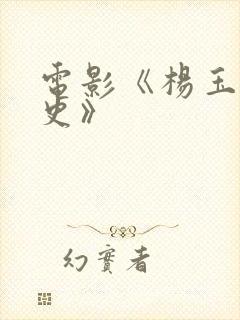 電影《楊玉
史》
幻實者